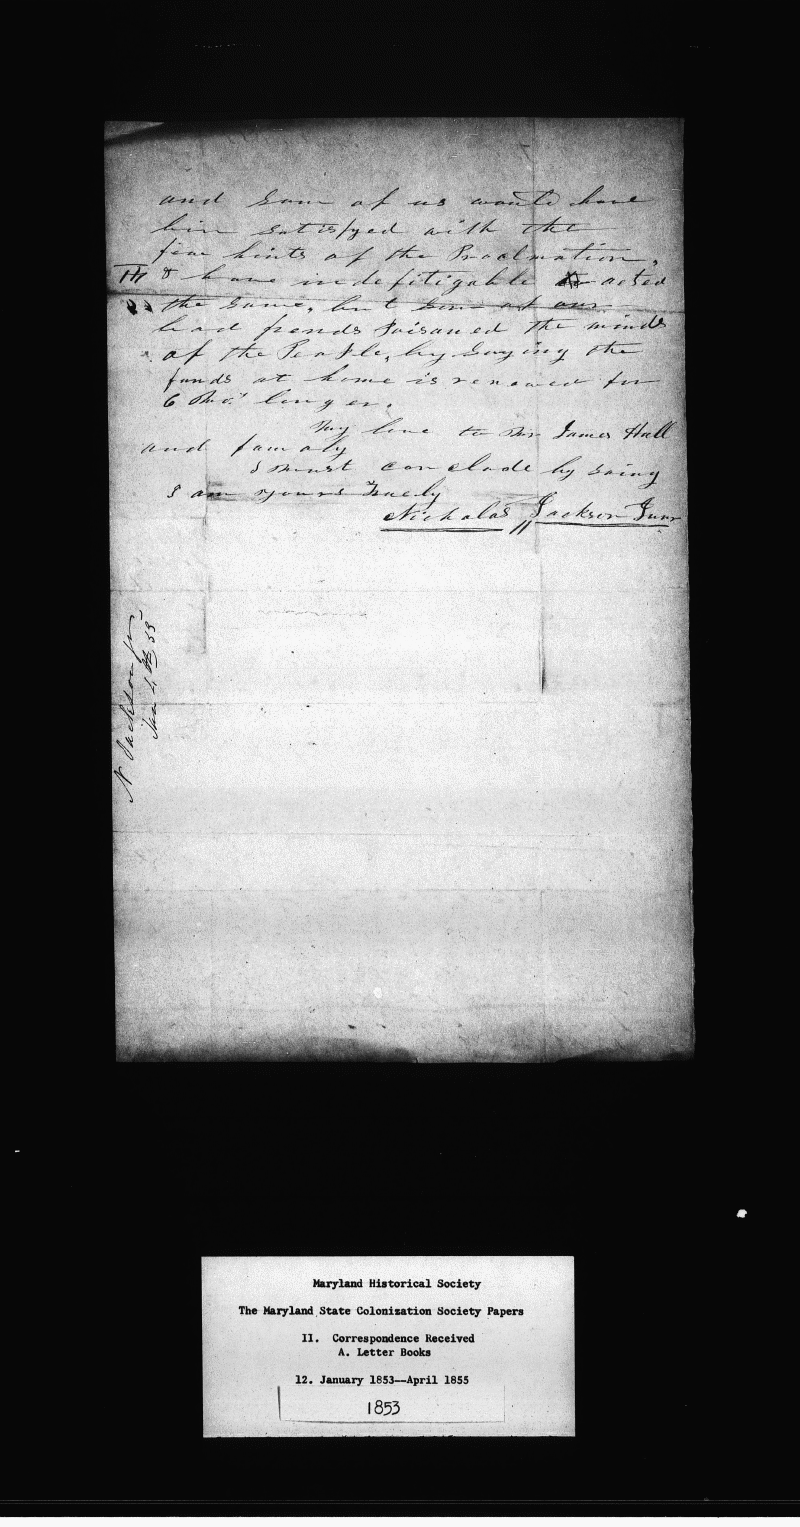 and Som of us would have
bin satisfyed with the
few hints of the Proclmation,
& have indefitigable acted
the Same, but som of our
bad frends Poisaned the minds
of the People, by Saying the
funds at home is renewed for
6 Mo.s longer.
My love to Mr James Hall
and famaly
I must conclude by saing
I am yours Truely
Nicholas Jackson Junr
N Jackson jr
Jan 4th 53
Maryland Historical Society
The Maryland State Colonization Society Papers
II. Correspondence Received
A. Letter Books
12. January 1853--April 1855
1853